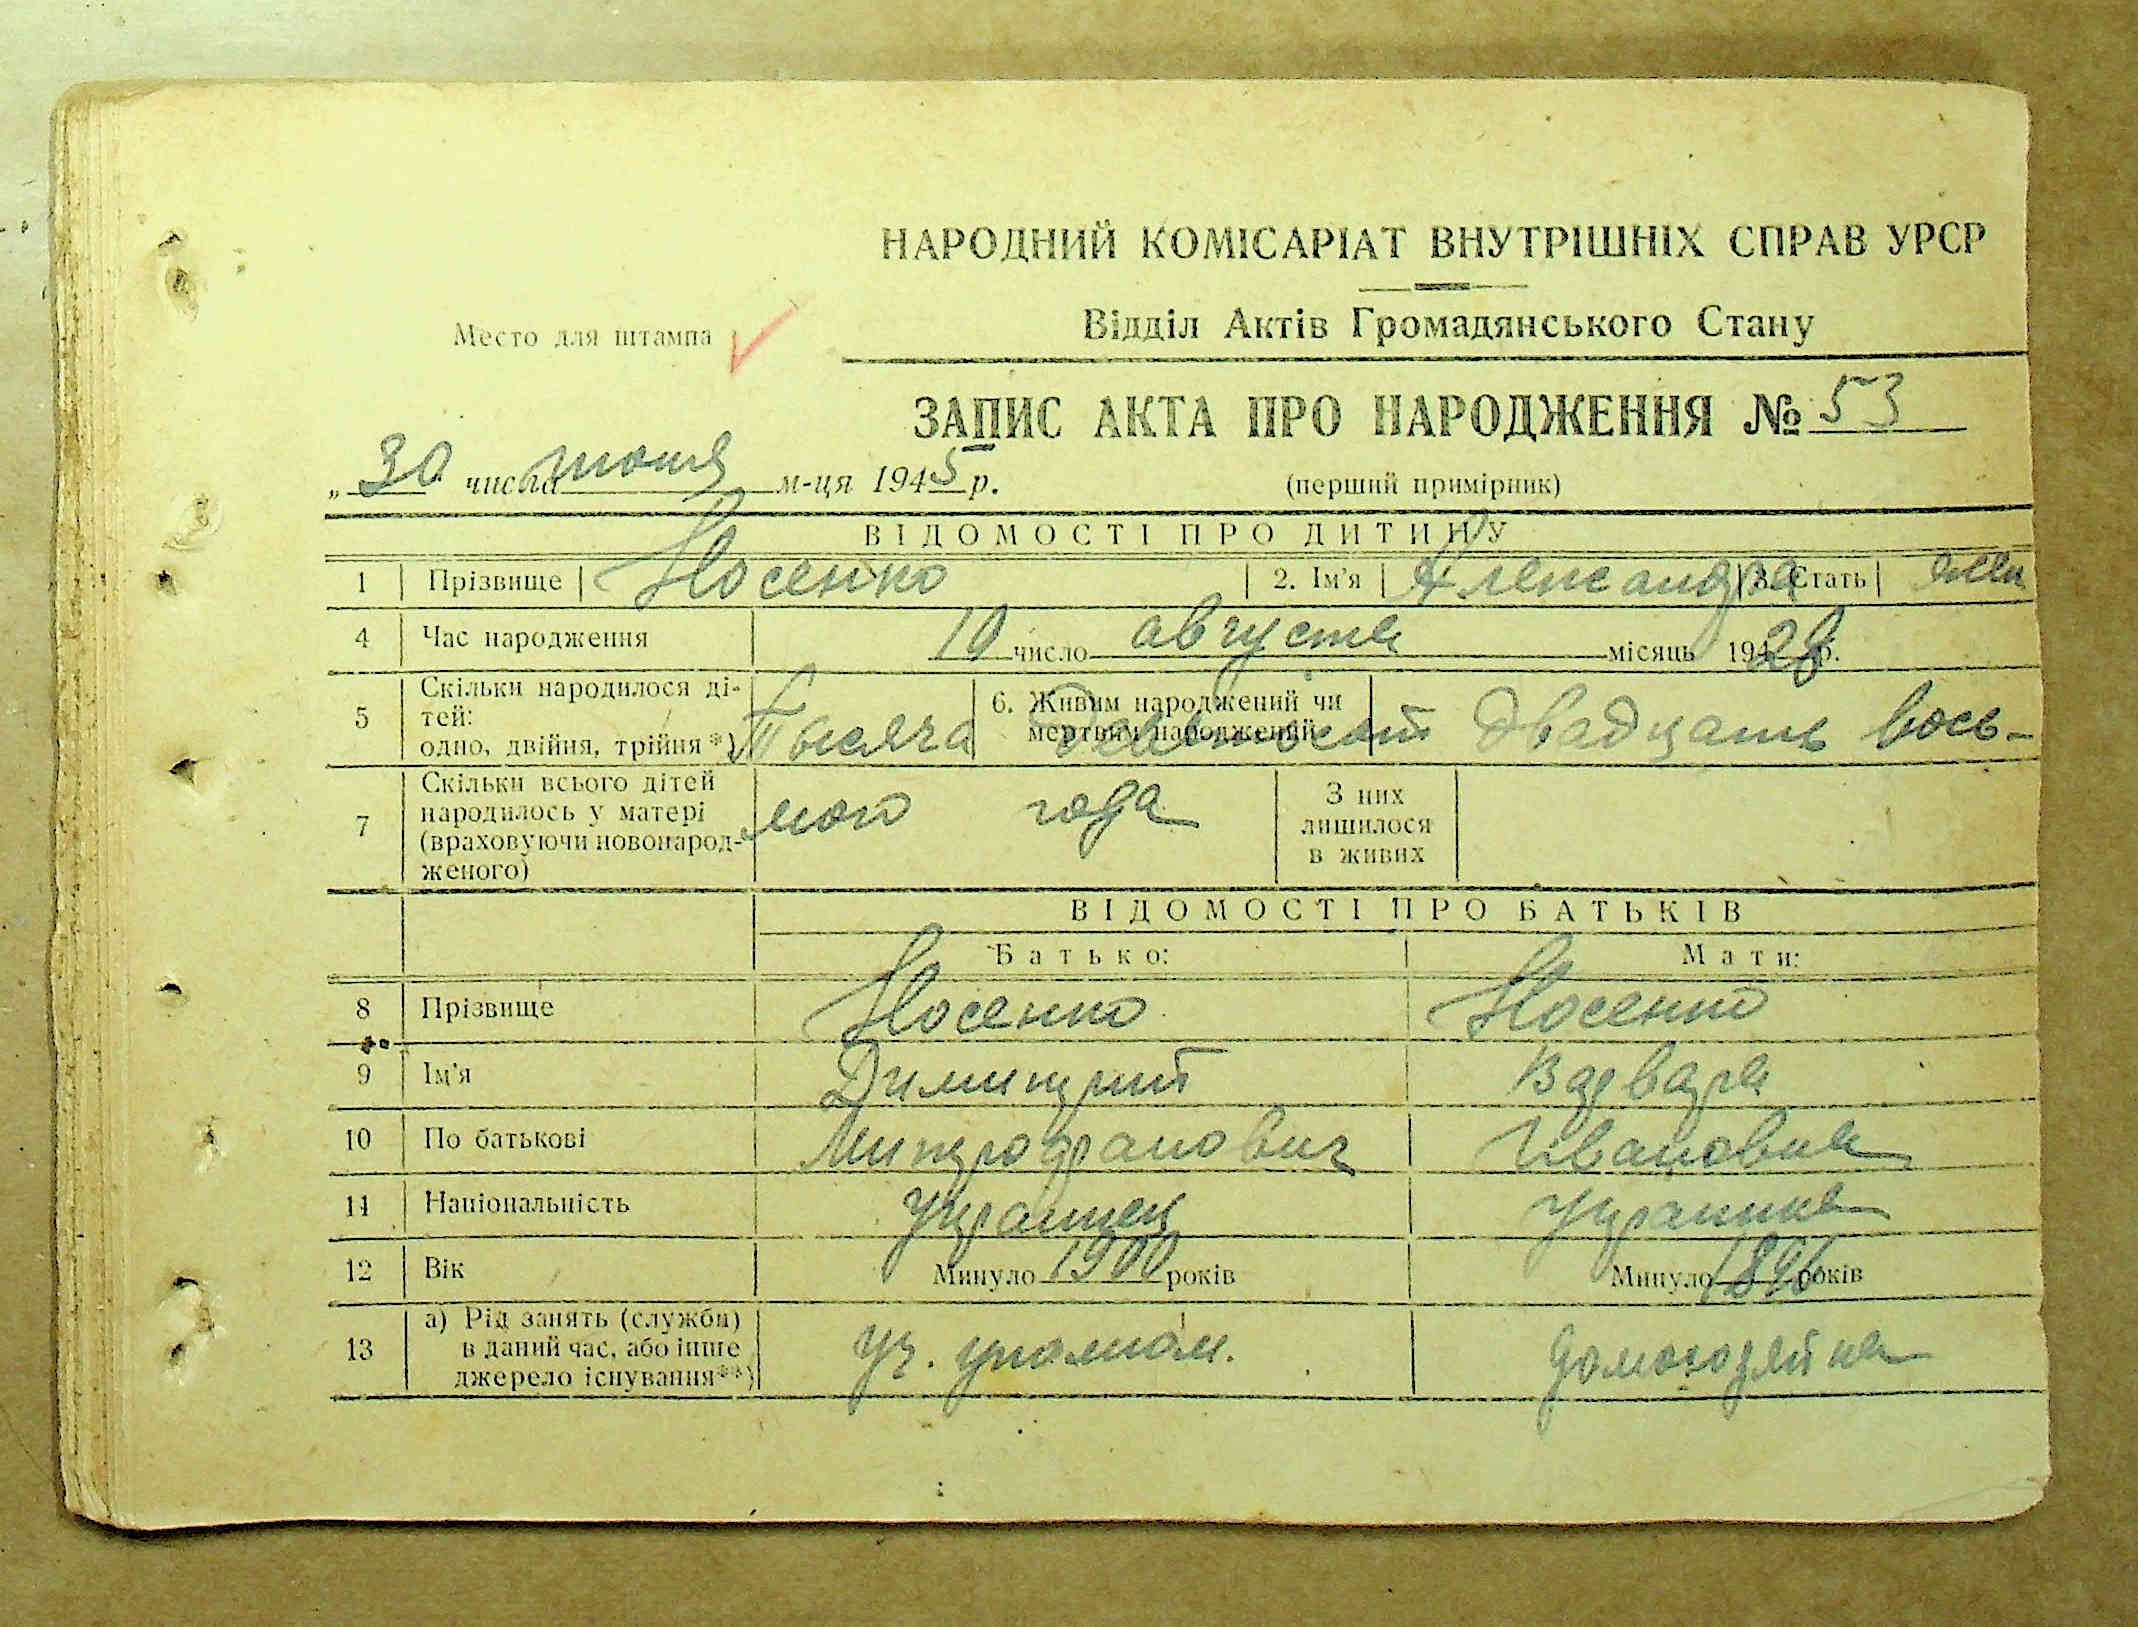 НАРОДНИЙ КОМІСАРІАТ ВНУТРІШНІХ СПРАВ УРСР
Место для штампа
Відділ Актів Громадянського Стану
ЗАПИС АКТА ПРО НАРОДЖЕННЯ № 53
„ 30 числа июня м-ця 1945 р.
(перший примірник)
ВІДОМОСТІ ПРО ДИТИНУ
1 Прізвище Носенко 2. Ім'я Александра 3. Стать жен
4 Час народження 10 число августа місяць 1928 р.
5 Скільки народилося ді-
тей:
одно, двійня, трійня *)
6. Живим народжений чи
мертвим народжений
Тысяча девятьсот двадцать вось-
7 Скільки всього дітей
народилось у матері
(враховуючи новонарод-
женого)
мого года
З них
лишилося
в живих
ВІДОМОСТІ ПРО БАТЬКІВ
Батько: Мати:
8 Прізвище Носенко Носенко
9 Ім'я Димитрий Варвара
10 По батькові Митрофанович Ивановна
11 Національність Украинец Украинка
12 Вік Минуло 1900 років Минуло 1896 років
13 а) Рід занять (служби)
в даний час, або інше
джерело існування**)
уч. уполном. домохозяйка